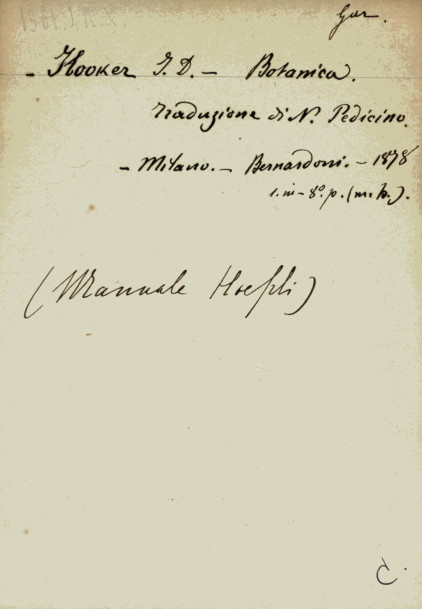 Gar.
- Hooker J. D. - Botanica.
Traduzione di N. Pedicino.
- Milano. - Bernardoni. - 1878
1. in - 8º. p. (m. h.).
(Manuale Hoepli)
C.